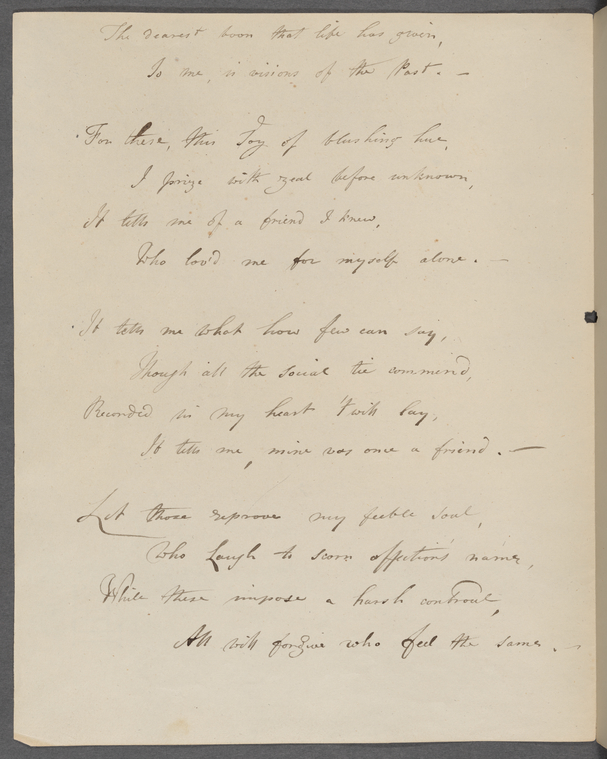 The dearest boon that life has given,
To me, is visions of the Past. —
For these, this Toy of blushing hue,
I prize with zeal before unknown,
It tells me of a friend I knew,
Who lov'd me for myself alone. —
It tells me what how few can say,
Though all the social tie commend,
Recorded in my heart 'twill lay,
It tells me, mine was once a friend. —
Let those reprove my feeble soul,
Who laugh to scorn affection's name,
While these impose a harsh controul,
All will forgive who feel the same. —